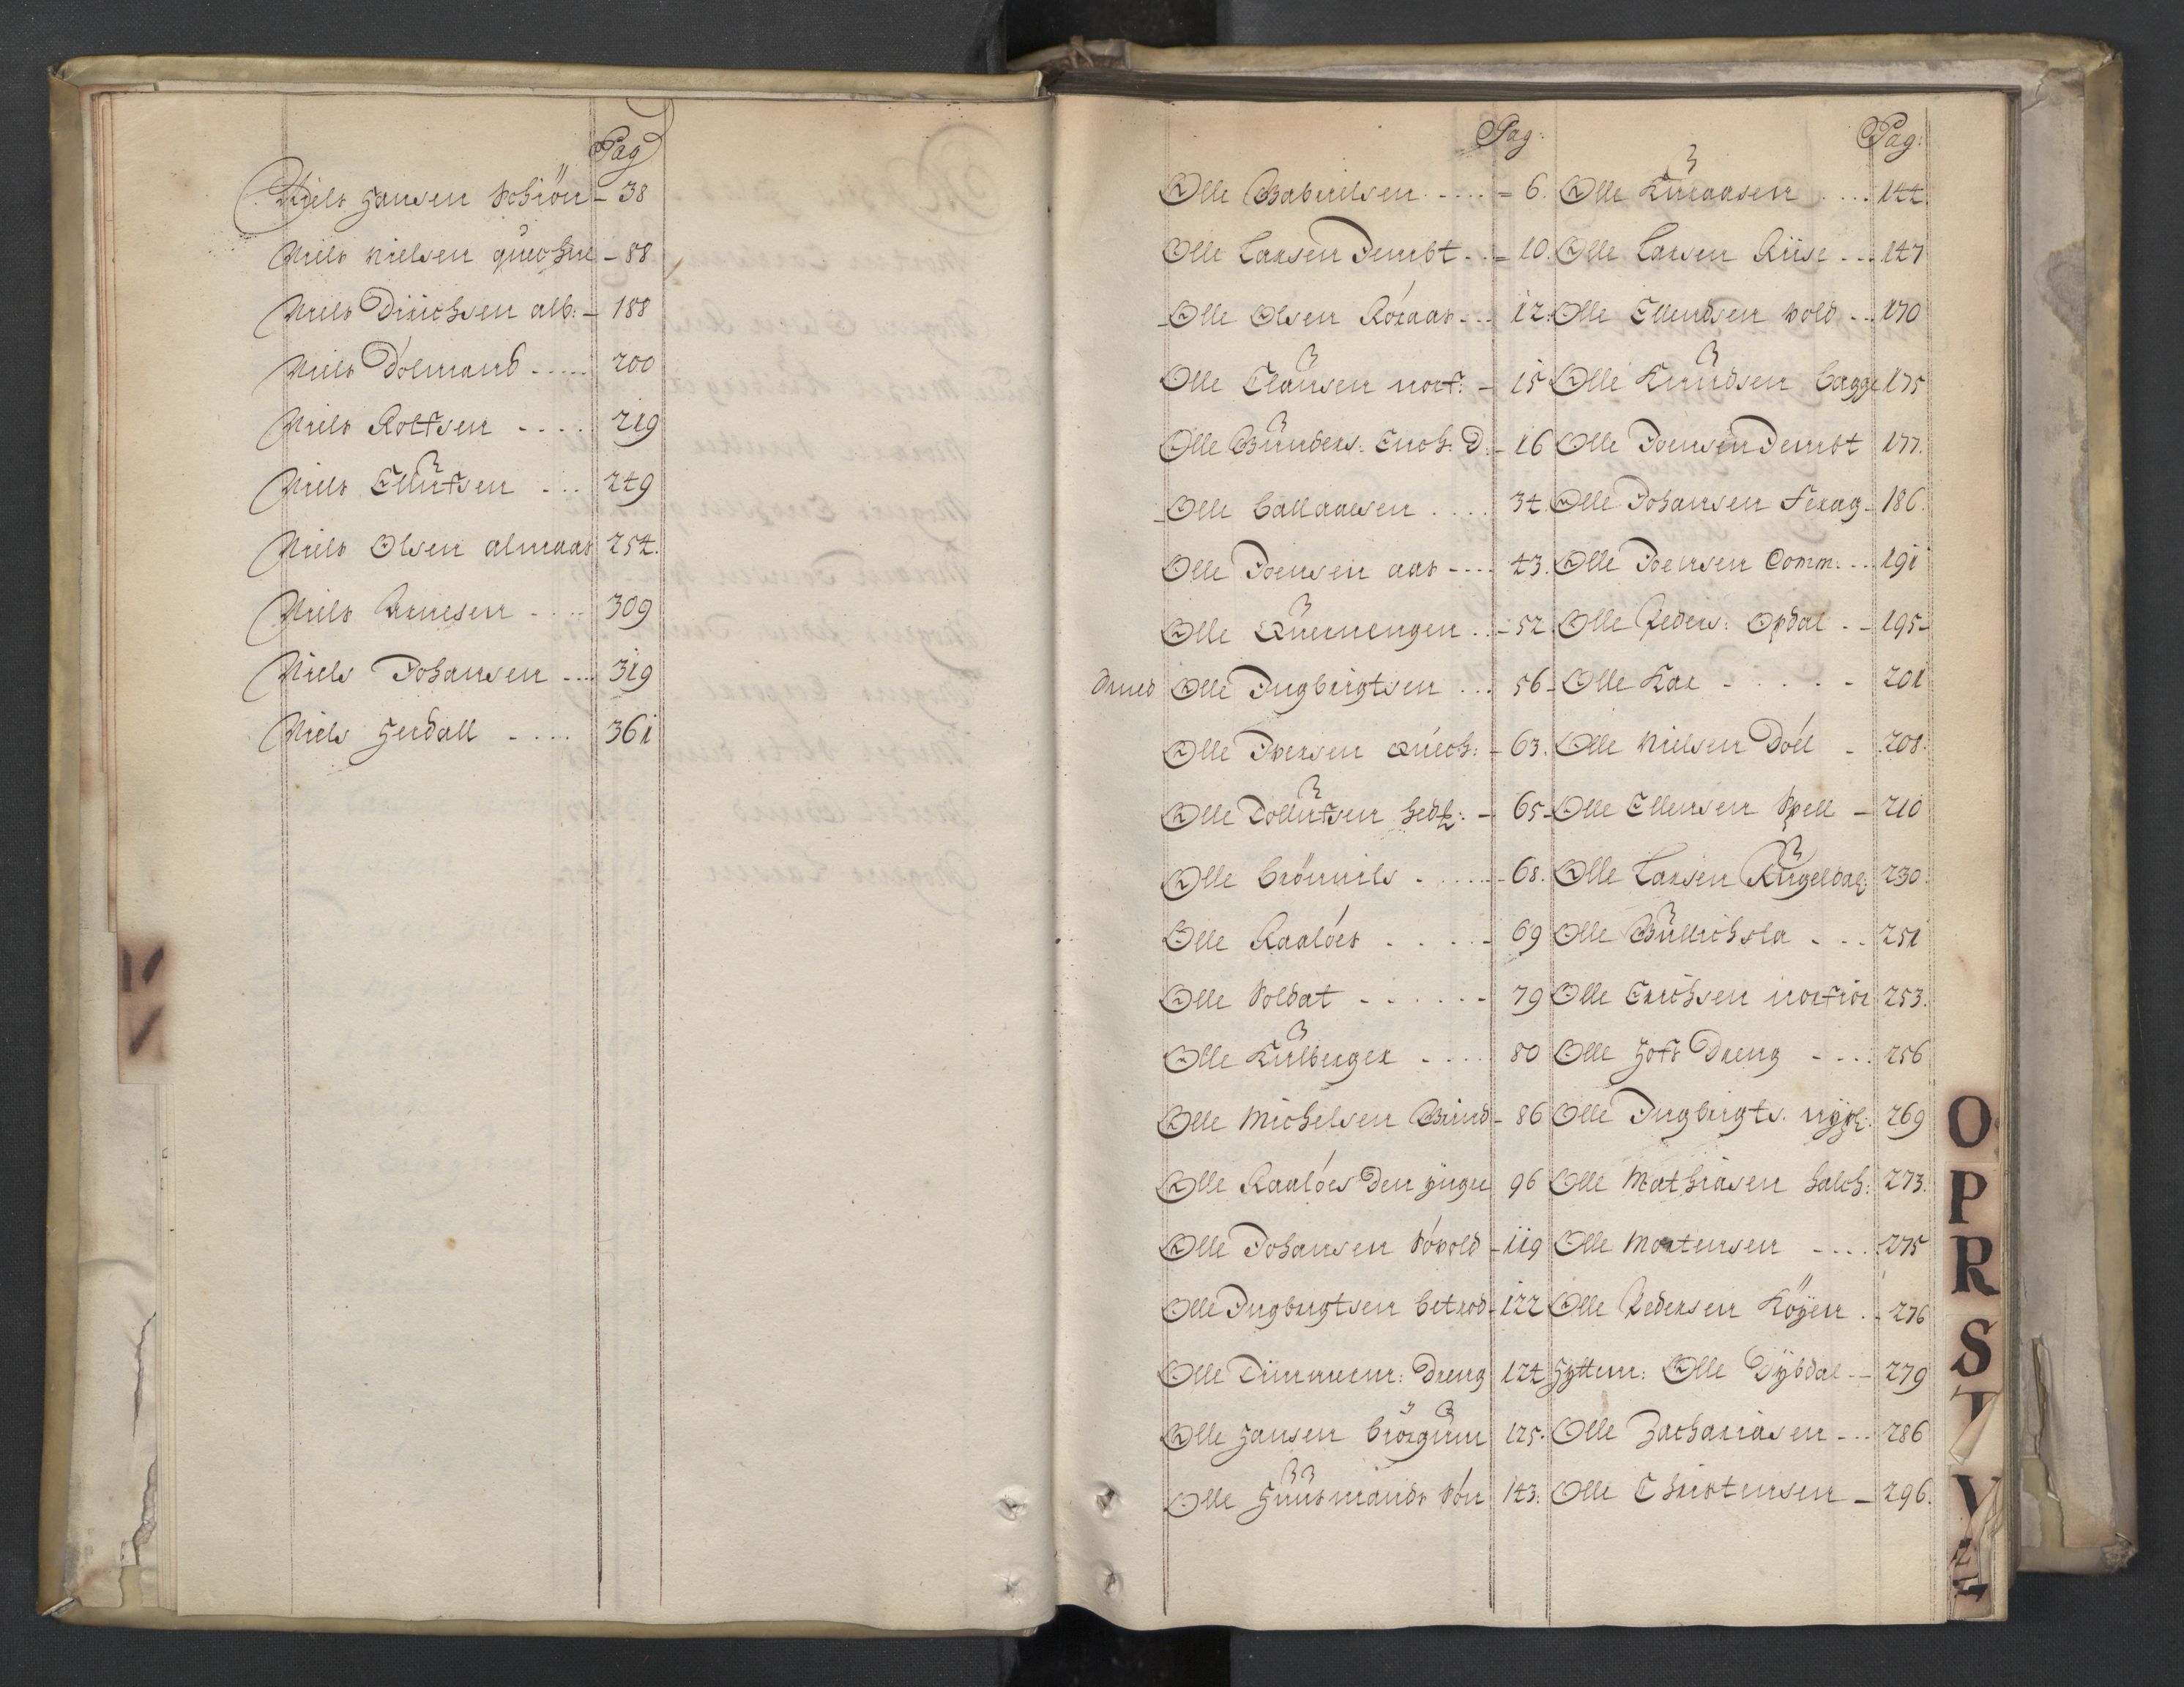 Pag
Niels Hansen Schiön - 38
Niels Nielsen quechne - 88
Niels Dirichsen alb: - 188
Niels Dolmand ..... 200
Niels Rolfsen .... 219
Niels Ellufsen ... 249
Niels Olsen almaas 254.
Niels Arnesen .... 309
Niels Johansen .... 319
Niels Herdall .... 361
N
Pag:
Olle Gabrielsen ..... 6.
Olle Larsen Dembt ... 10.
Olle Olsen Róraas ... 12.
Olle Clausen norf: - 15
Olle Gunders: Ench: D: - 16
Olle Callaaesen .... 34.
Olle Joensen aas .... 43.
Olle Quernengen .. - 52
Smed Olle Ingbrigtsen ... 56
Olle Iversen Qúech: - 63.
Olle Tollufsen hedh: - 65
Olle Brönnils ..... - 68.
Olle Raalóes ..... 69
Olle Soldat ...... 79
Olle Kulberger .... 80
Olle Michelsen Grind - 86
Olle Raalóes den ÿnger 96
Olle Johansen Sóvold - 119
Olle Ingbrigtsen betrod - 122
Olle Timmerm: Dreng 124
Olle Hansen Brörgum 125.
Olle Huusmands Són 143.
Pag:
Olle Knraasen .... 144.
Olle Larsen Riise ... 147
Olle Ellendsen vold ... 170
Olle Knudsen Bagge 175
Olle Joensen Dembt 177.
Olle Johansen Ferag - 186.
Olle Joensen Comm: ... 191
Olle Peders: Opdal .. 195
Olle Kar ..... 201
Olle Nielsen Dóel - 208.
Olle Ellensen Spell - 210
Olle Larsen Rugeldal: 230.
Olle Gullichsla ... 251
Olle Erichsen norfior 253.
Olle Hofs Dreng .... 256
Olle Ingbrigts. nÿpl: 269
Olle Mathiasen halch: 273.
Olle Mortensen .... 275
Olle Pedersen Köÿen .. 276
Hyttem: Olle Dÿbdal .. 279
Olle Zachariasen ... 286
Olle Christensen - 296.
O
P
R
S
T
V